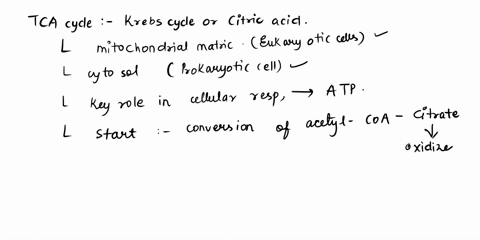 TCA cycle :- Krebs cycle or Citric acid.
L mitochondrial matric. (Eukaryotic cells) ✓
L cytosol (Prokaryotic cell) ✓
L Key role in cellular resp, → ATP.
L Start :- conversion of acetyl-COA - Citrate
↓
oxidize